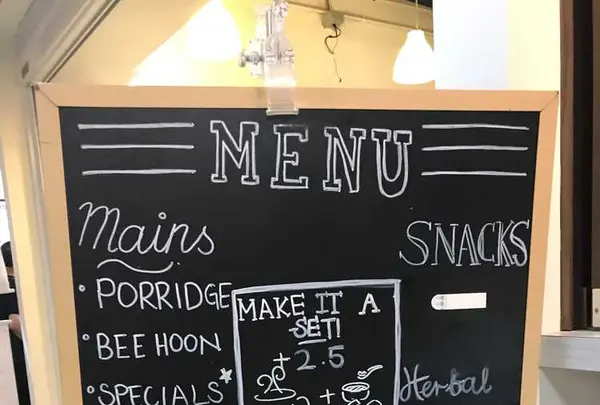 MENU
Mains
• PORRIDGE
• BEE HOON
• SPECIALS*
MAKE IT A
SET!
+2.5
+
SNACKS
Herbal